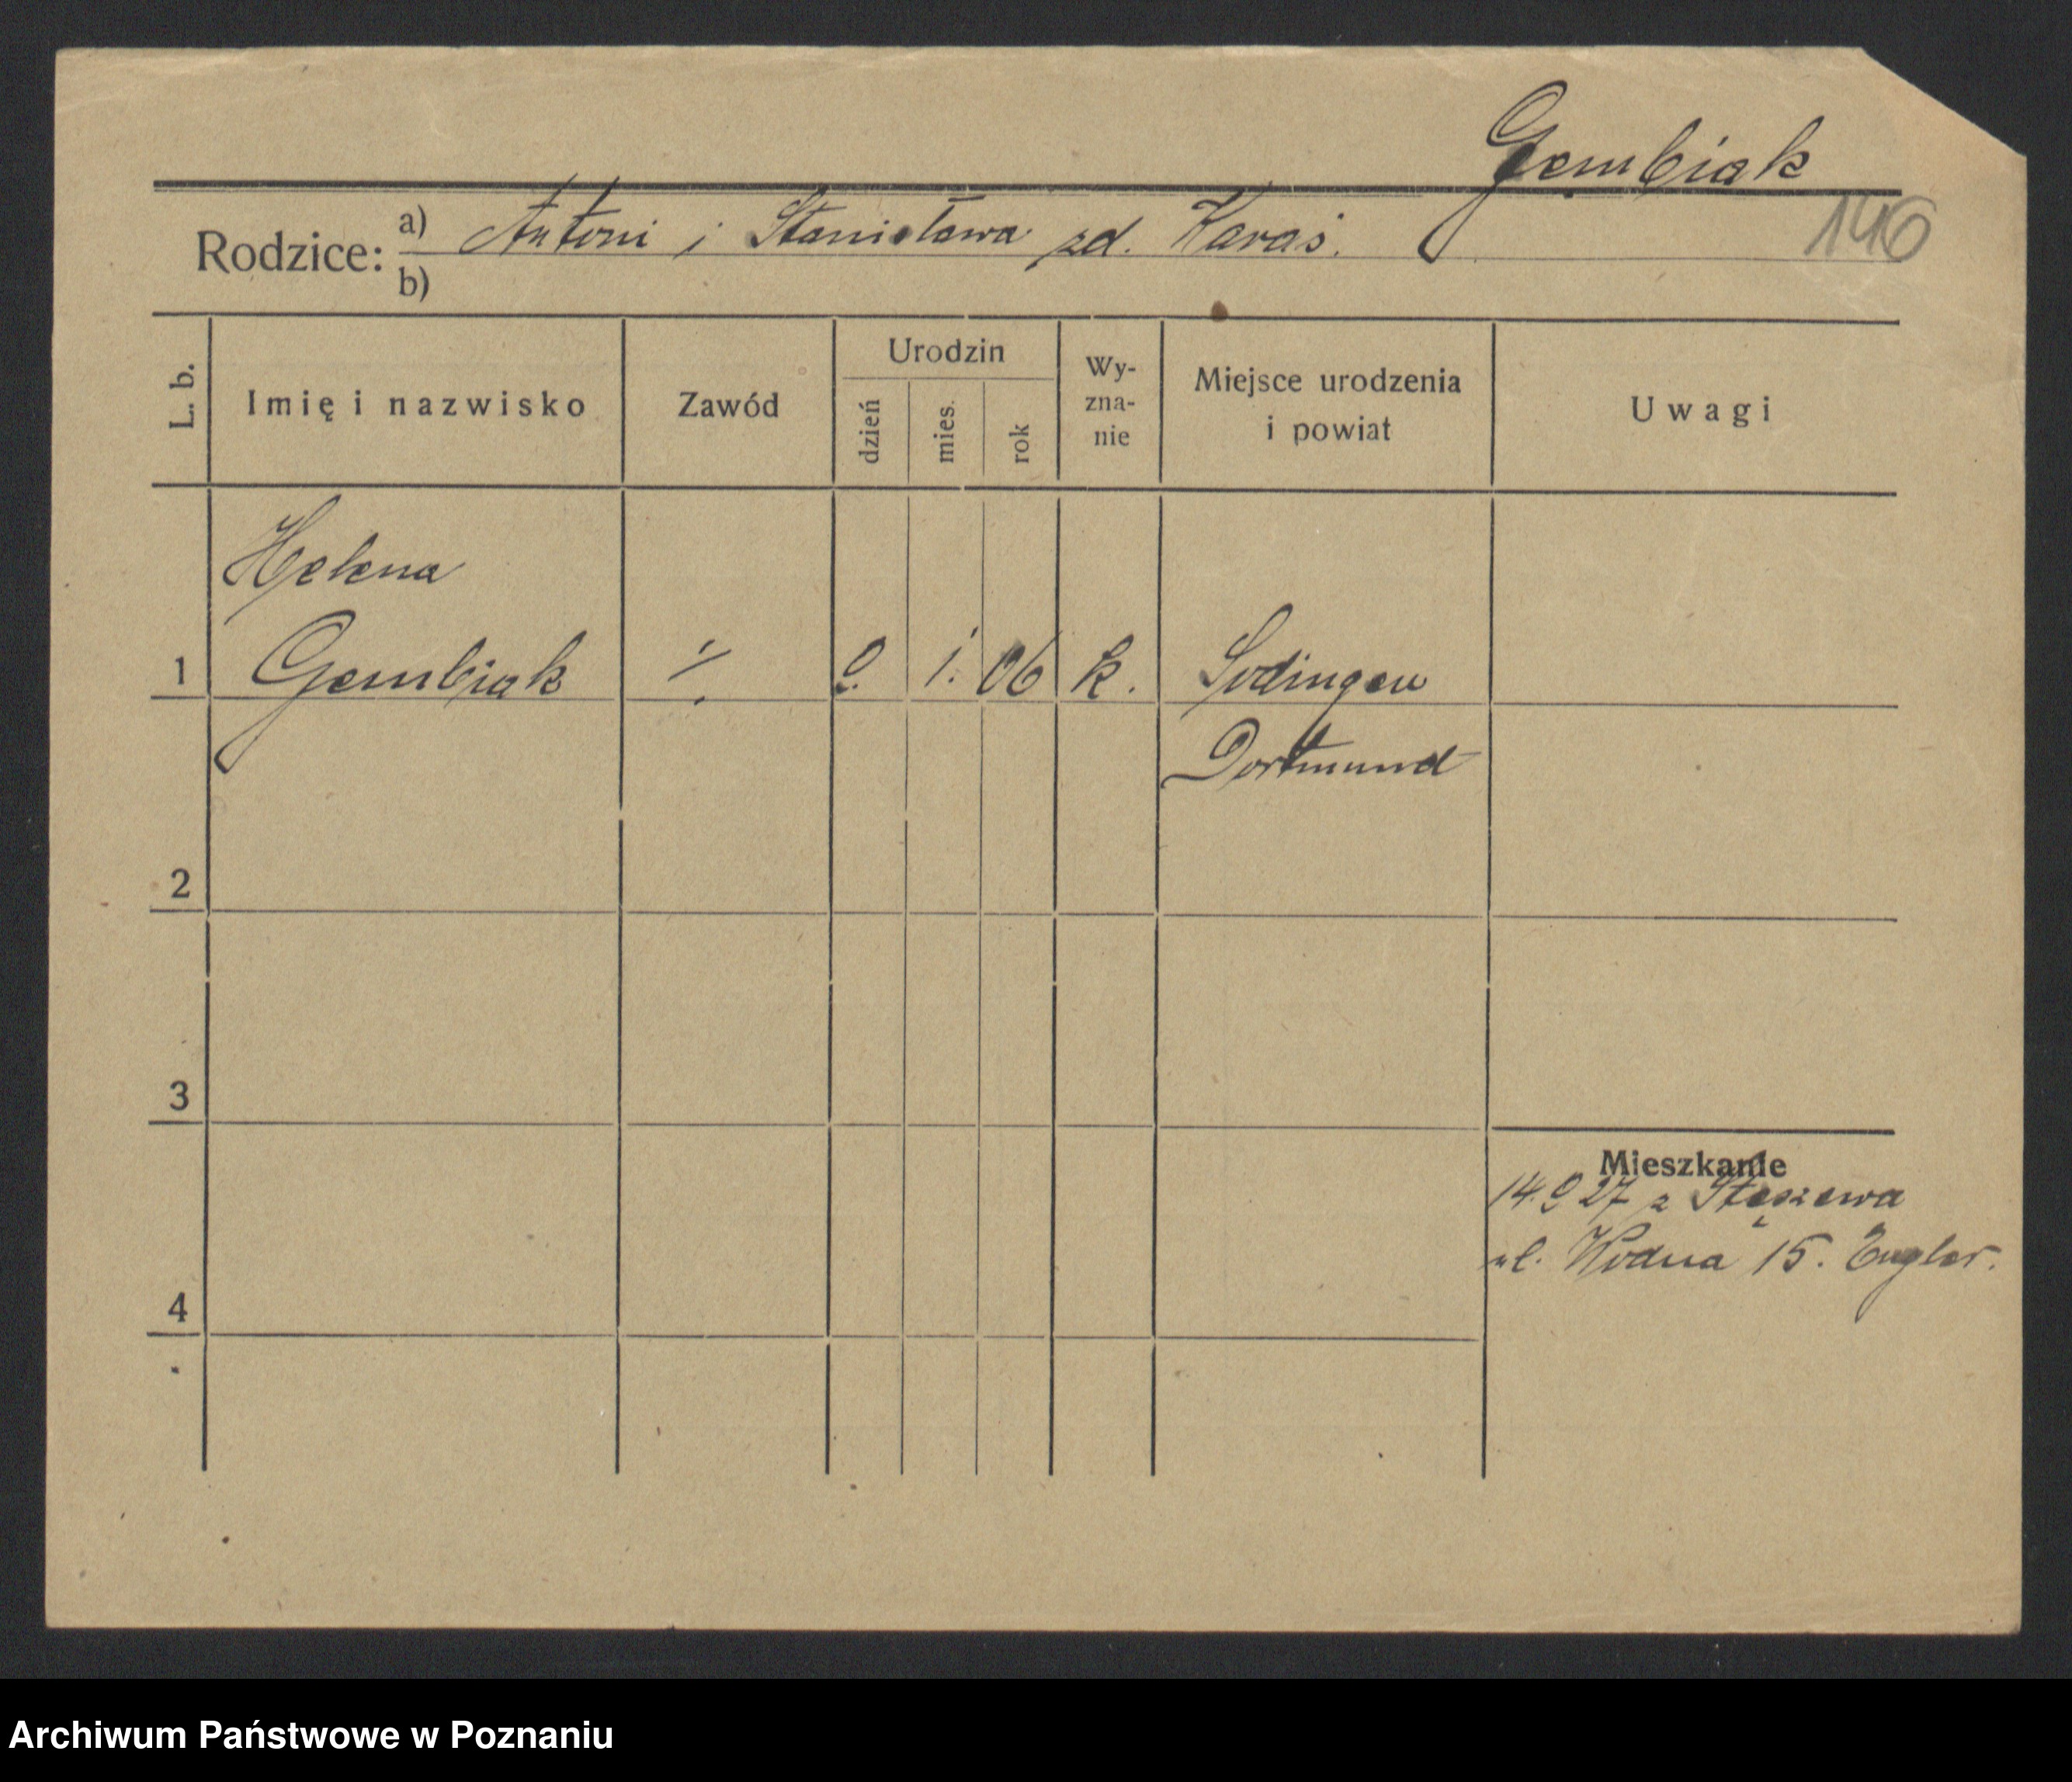 Gembiak
146
Rodzice: a) Antoni i Stanisława zd. Karaś.
b)
L. b.
Imię i nazwisko
Zawód
Urodzin
dzień
mies.
rok
Wy-
zna-
nie
Miejsce urodzenia
i powiat
Uwagi
Helena
1 Gembiak ⁒ 9. 1. 06 k. Sodingen
Dortmund
2
3
Mieszkanie
14.9 27 z Stęszewa
ul. Wodna 15. Engler.
4
Archiwum Państwowe w Poznaniu